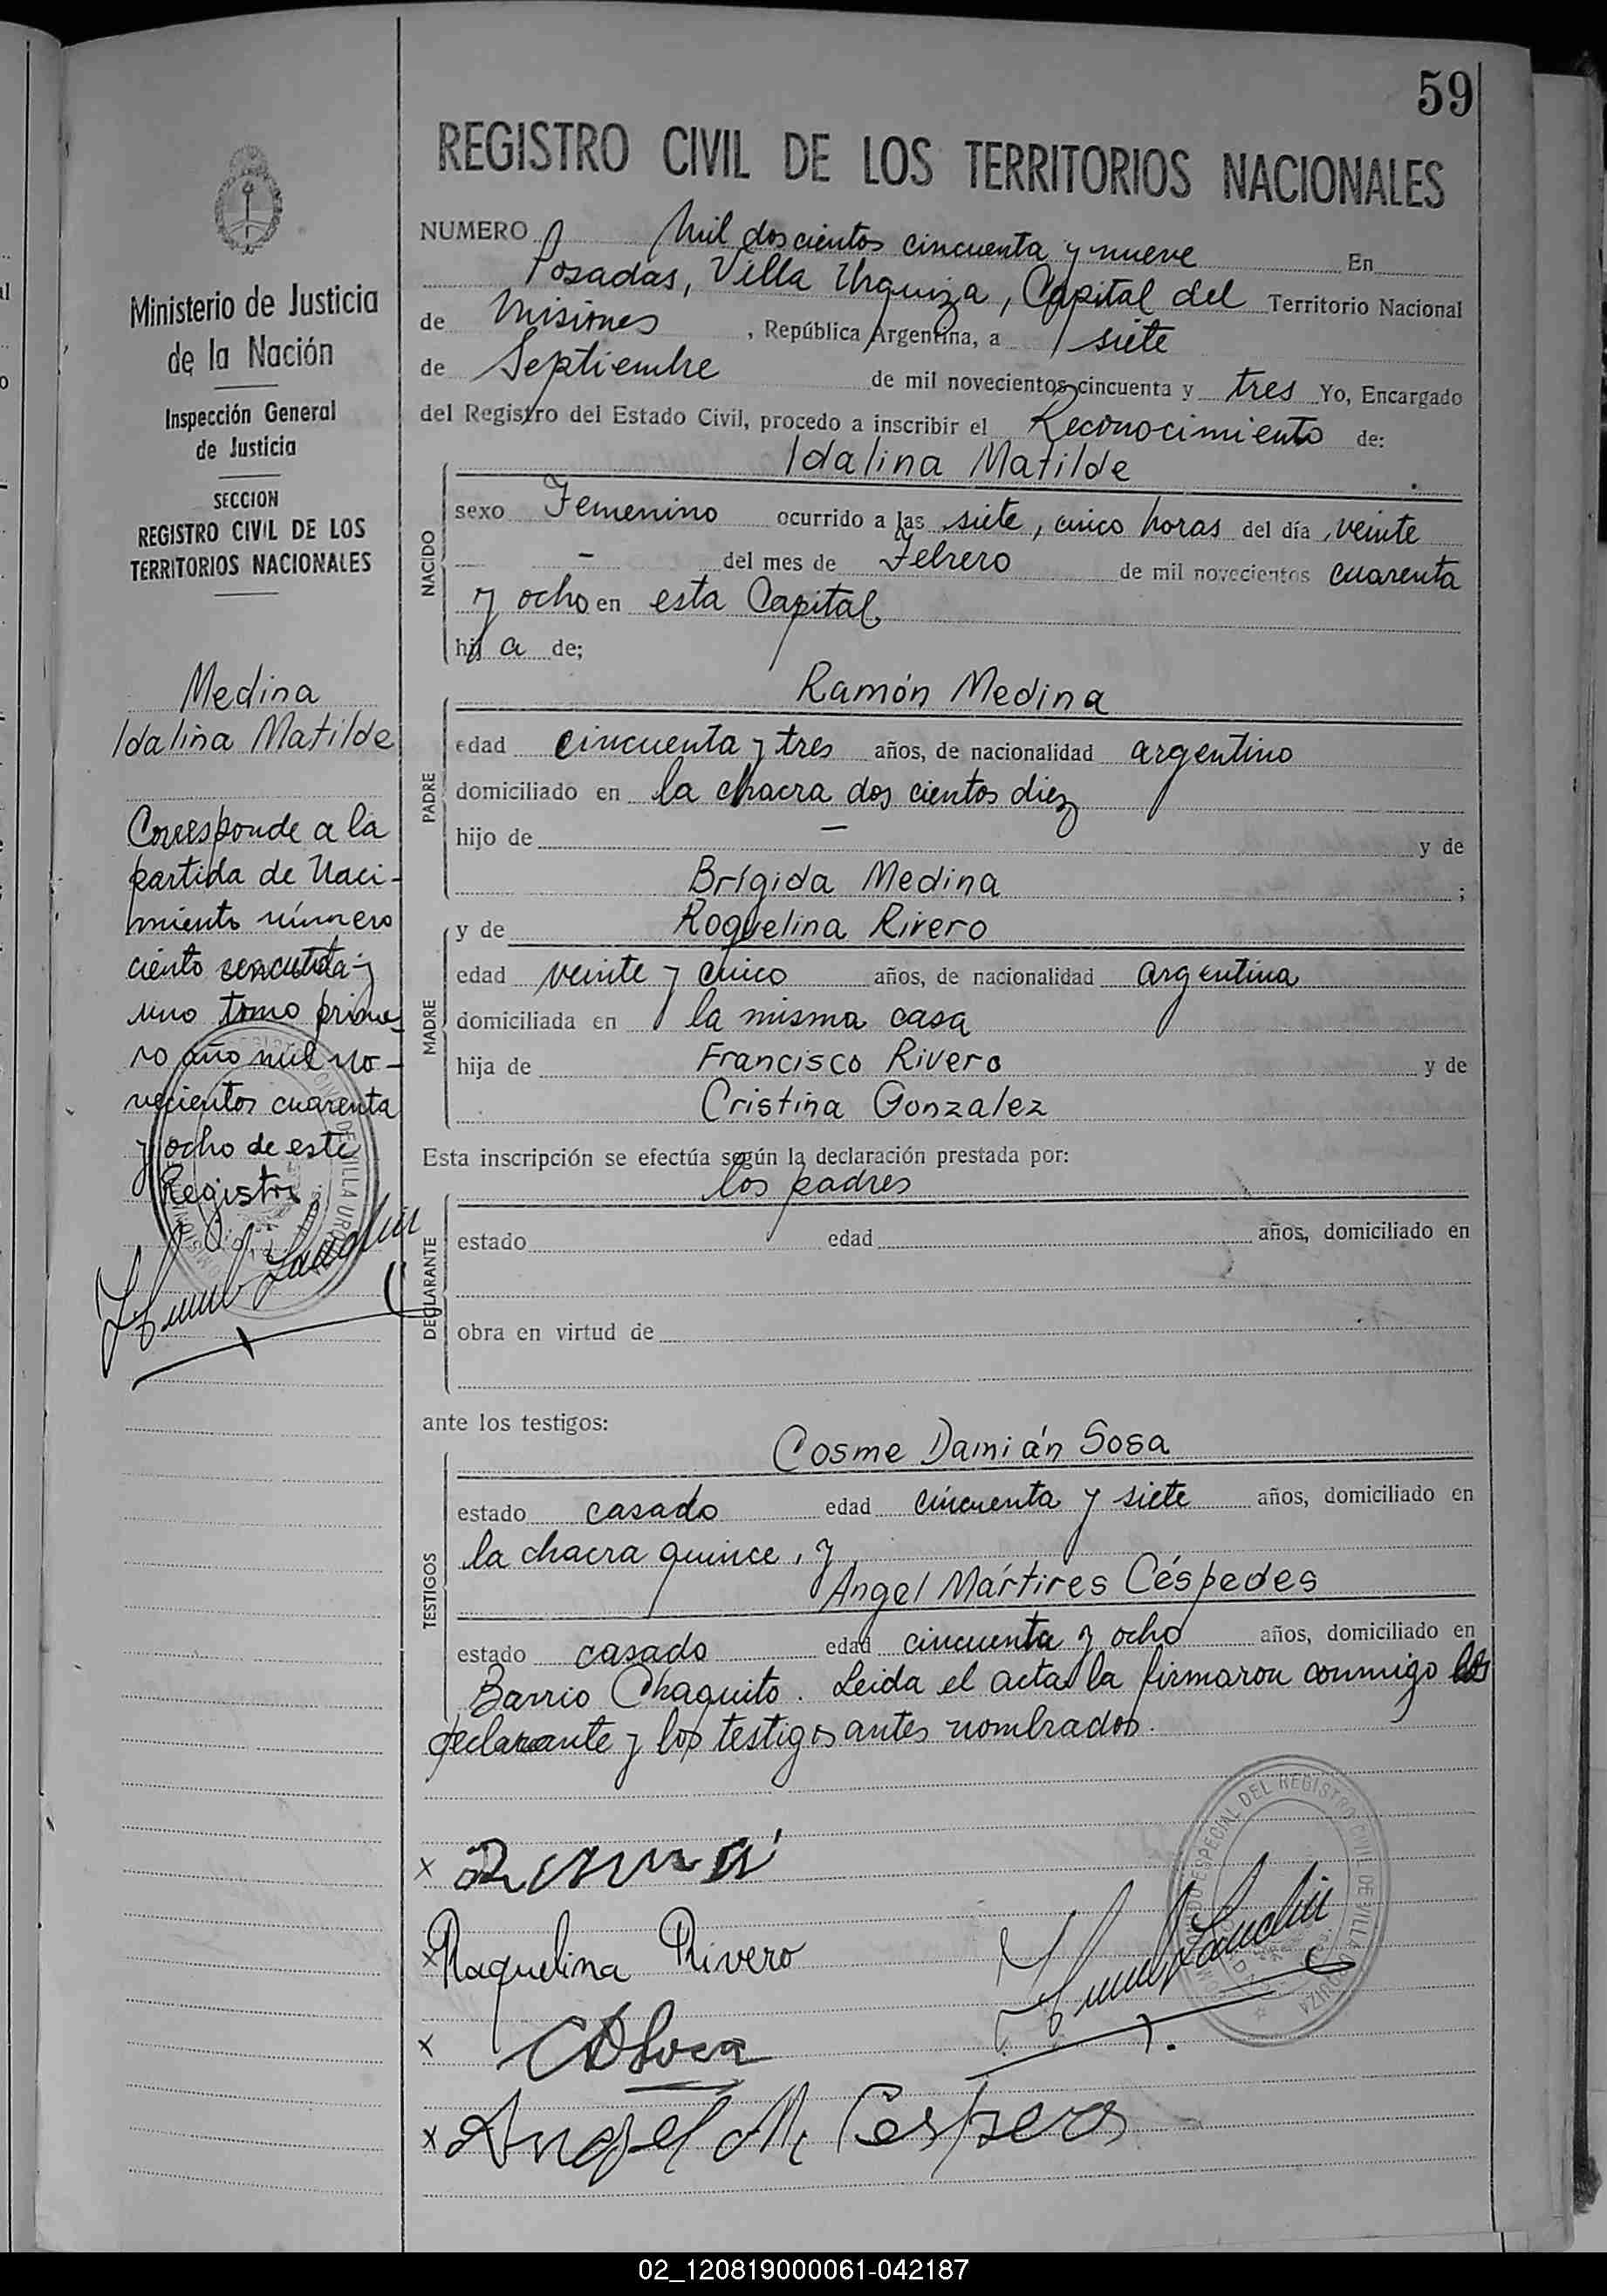 59
REGISTRO CIVIL DE LOS TERRITORIOS NACIONALES
Ministerio de Justicia
de la Nación
Inspección General
de Justicia
SECCION
REGISTRO CIVIL DE LOS
TERRITORIOS NACIONALES
Medina
Idalina Matilde
Corresponde a la
partida de Naci-
miento número
ciento y
uno tomo prime-
ro año mil no-
vecientos cuarenta
y ocho de este
Registro
NUMERO Mil doscientos cincuenta y nueve En
Posadas, Villa Urquiza, Capital del Territorio Nacional
de Misiones, República Argentina, a siete
de Septiembre de mil novecientos cincuenta y tres Yo, Encargado
del Registro del Estado Civil, procedo a inscribir el Reconocimiento de:
Idalina Matilde
NACIDO
sexo Femenino ocurrido a las siete, cinco horas del día veinte
- del mes de Febrero de mil novecientos cuarenta
y ocho en esta Capital
hija de;
Ramón Medina
PADRE
edad cincuenta y tres años, de nacionalidad argentino
domiciliado en la chacra dos cientos diez
hijo de — y de
Brígida Medina ;
y de Roquelina Rivero
MADRE
edad veinte y cinco años, de nacionalidad argentina
domiciliada en la misma casa
hija de Francisco Rivero y de
Cristina Gonzalez
Esta inscripción se efectúa según la declaración prestada por:
los padres
DECLARANTE
estado edad años, domiciliado en
obra en virtud de
ante los testigos:
Cosme Damián Sosa
TESTIGOS
estado casado edad cincuenta y siete años, domiciliado en
la chacra quince, y
Angel Mártires Céspedes
estado casado edad cincuenta y ocho años, domiciliado en
Barrio Chaquito. Leida el acta la firmaron conmigo los
declarante y los testigos antes nombrados.
x
x Raquelina Rivero
x CDSosa
x Angel M. Cespedes
DEL REGISTRO CIVIL DE VILLA URQUIZA
02_120819000061-042187